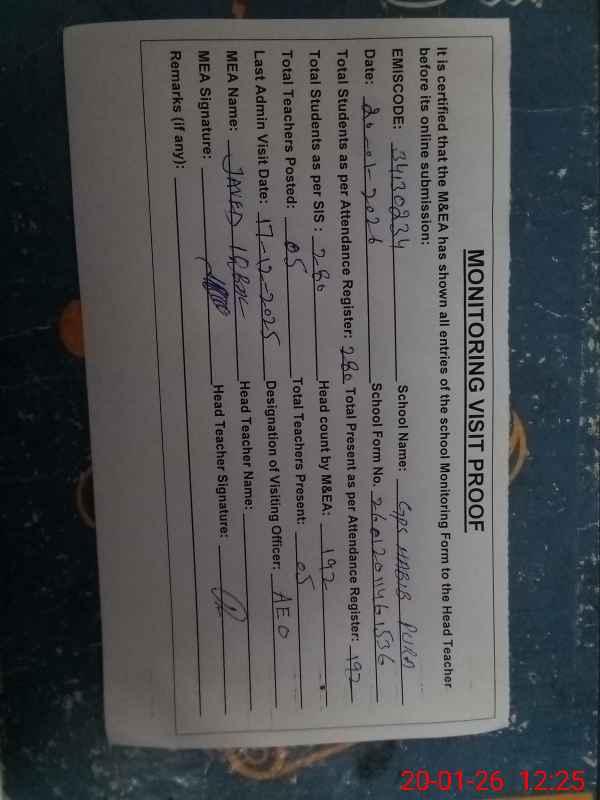 MONITORING VISIT PROOF
It is certified that the M&EA has shown all entries of the school Monitoring Form to the Head Teacher
before its online submission:
EMISCODE: 34130234 School Name: GPS HABIB PURA
Date: 20-01-2026 School Form No. 26012011461536
Total Students as per Attendance Register: 280 Total Present as per Attendance Register: 192
Total Students as per SIS : 280 Head count by M&EA: 192
Total Teachers Posted: 05 Total Teachers Present: 05
Last Admin Visit Date: 17-12-2025 Designation of Visiting Officer: AEO
MEA Name: JAVED IQBAL Head Teacher Name:
MEA Signature: Head Teacher Signature:
Remarks (if any):
20-01-26 12:25